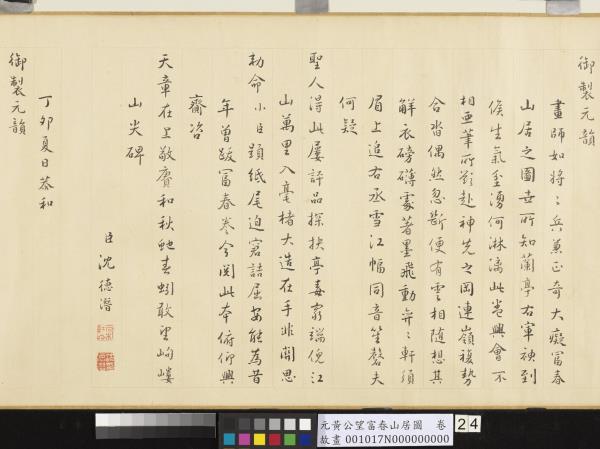 御製元韻
畫師如將〻兵兼正奇大癡富春
山居之圖世所知蘭亭右軍稧到
候生氣坌湧何淋漓此卷興會不
相亞筆所欲赴神先之岡連嶺複勢
合沓偶然忽斷便有雲相隨想其
解衣磅礴處著墨飛動弁〻軒須
眉上追右丞雪江幅同音笙磬夫
何疑
聖人得此屢評品探抉亭毒窮端倪江
山萬里入毫楮大造在手非關思
勅命小臣題紙尾迫窘詰屈安能為昔
年曾跋富春卷今閱此本俯仰興
齋咨
天章在上敬賡和秋虵春蚓敢望岣嶁
山尖碑
臣沈德潛
丁卯夏日恭和
御製元韻
元黃公望富春山居圖 卷
故畫 001017N000000000
24